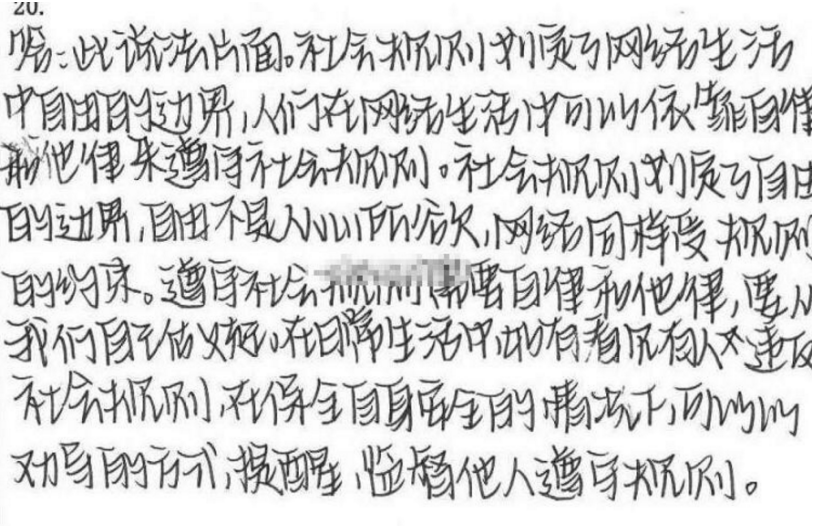 20.
答:此说法片面。社会规则划定了网络生活
中自由的边界,人们在网络生活中可以依靠自律
和他律来遵守社会规则。社会规则划定了自由
的边界,自由不是从心所欲,网络同样受规则
的约束。遵守社会规则需要自律和他律,要从
我们自己做起。在日常生活中,如有看见有人违反
社会规则,在保全自身安全的情况下,可以以
劝导的方式,提醒,监督他人遵守规则。